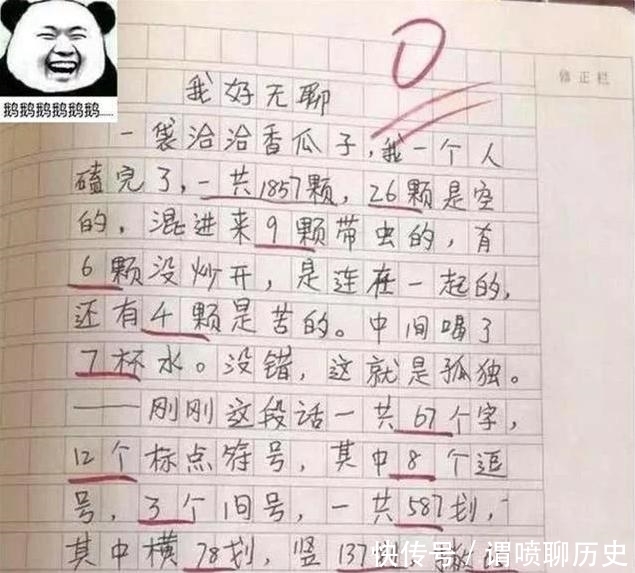 0
修正栏
鹅鹅鹅鹅鹅鹅......
我好无聊
一袋洽洽香瓜子,我一个人
磕完了,一共1857颗,26颗是空
的,混进来9颗带虫的,有
6颗没炒开,是连在一起的,
还有4颗是苦的。中间喝了
7杯水。没错,这就是孤独。
——刚刚这段话一共67个字,
12个标点符号,其中8个逗
号,3个句号,一共587划,
其中横78划,竖137
快传号/谓喷聊历史